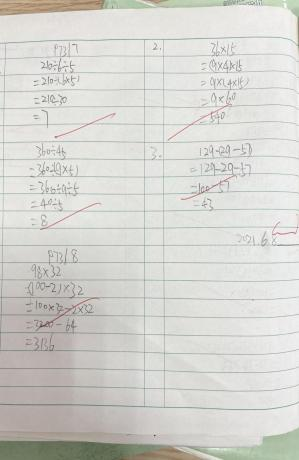 P73/7
210÷6÷5
=210÷(6×5)
=210÷30
=7
360÷45
=360÷(9×5)
=360÷9÷5
=40÷5
=8
P73/8
98×32
=(100-2)×32
=100×32-2×32
=3200-64
=3136
2.
36×15
=(9×4×15
=9×(4×15)
=9×60
=540
3.
129-29-57
=129-29-57
=100-57
=43
2021.6.8